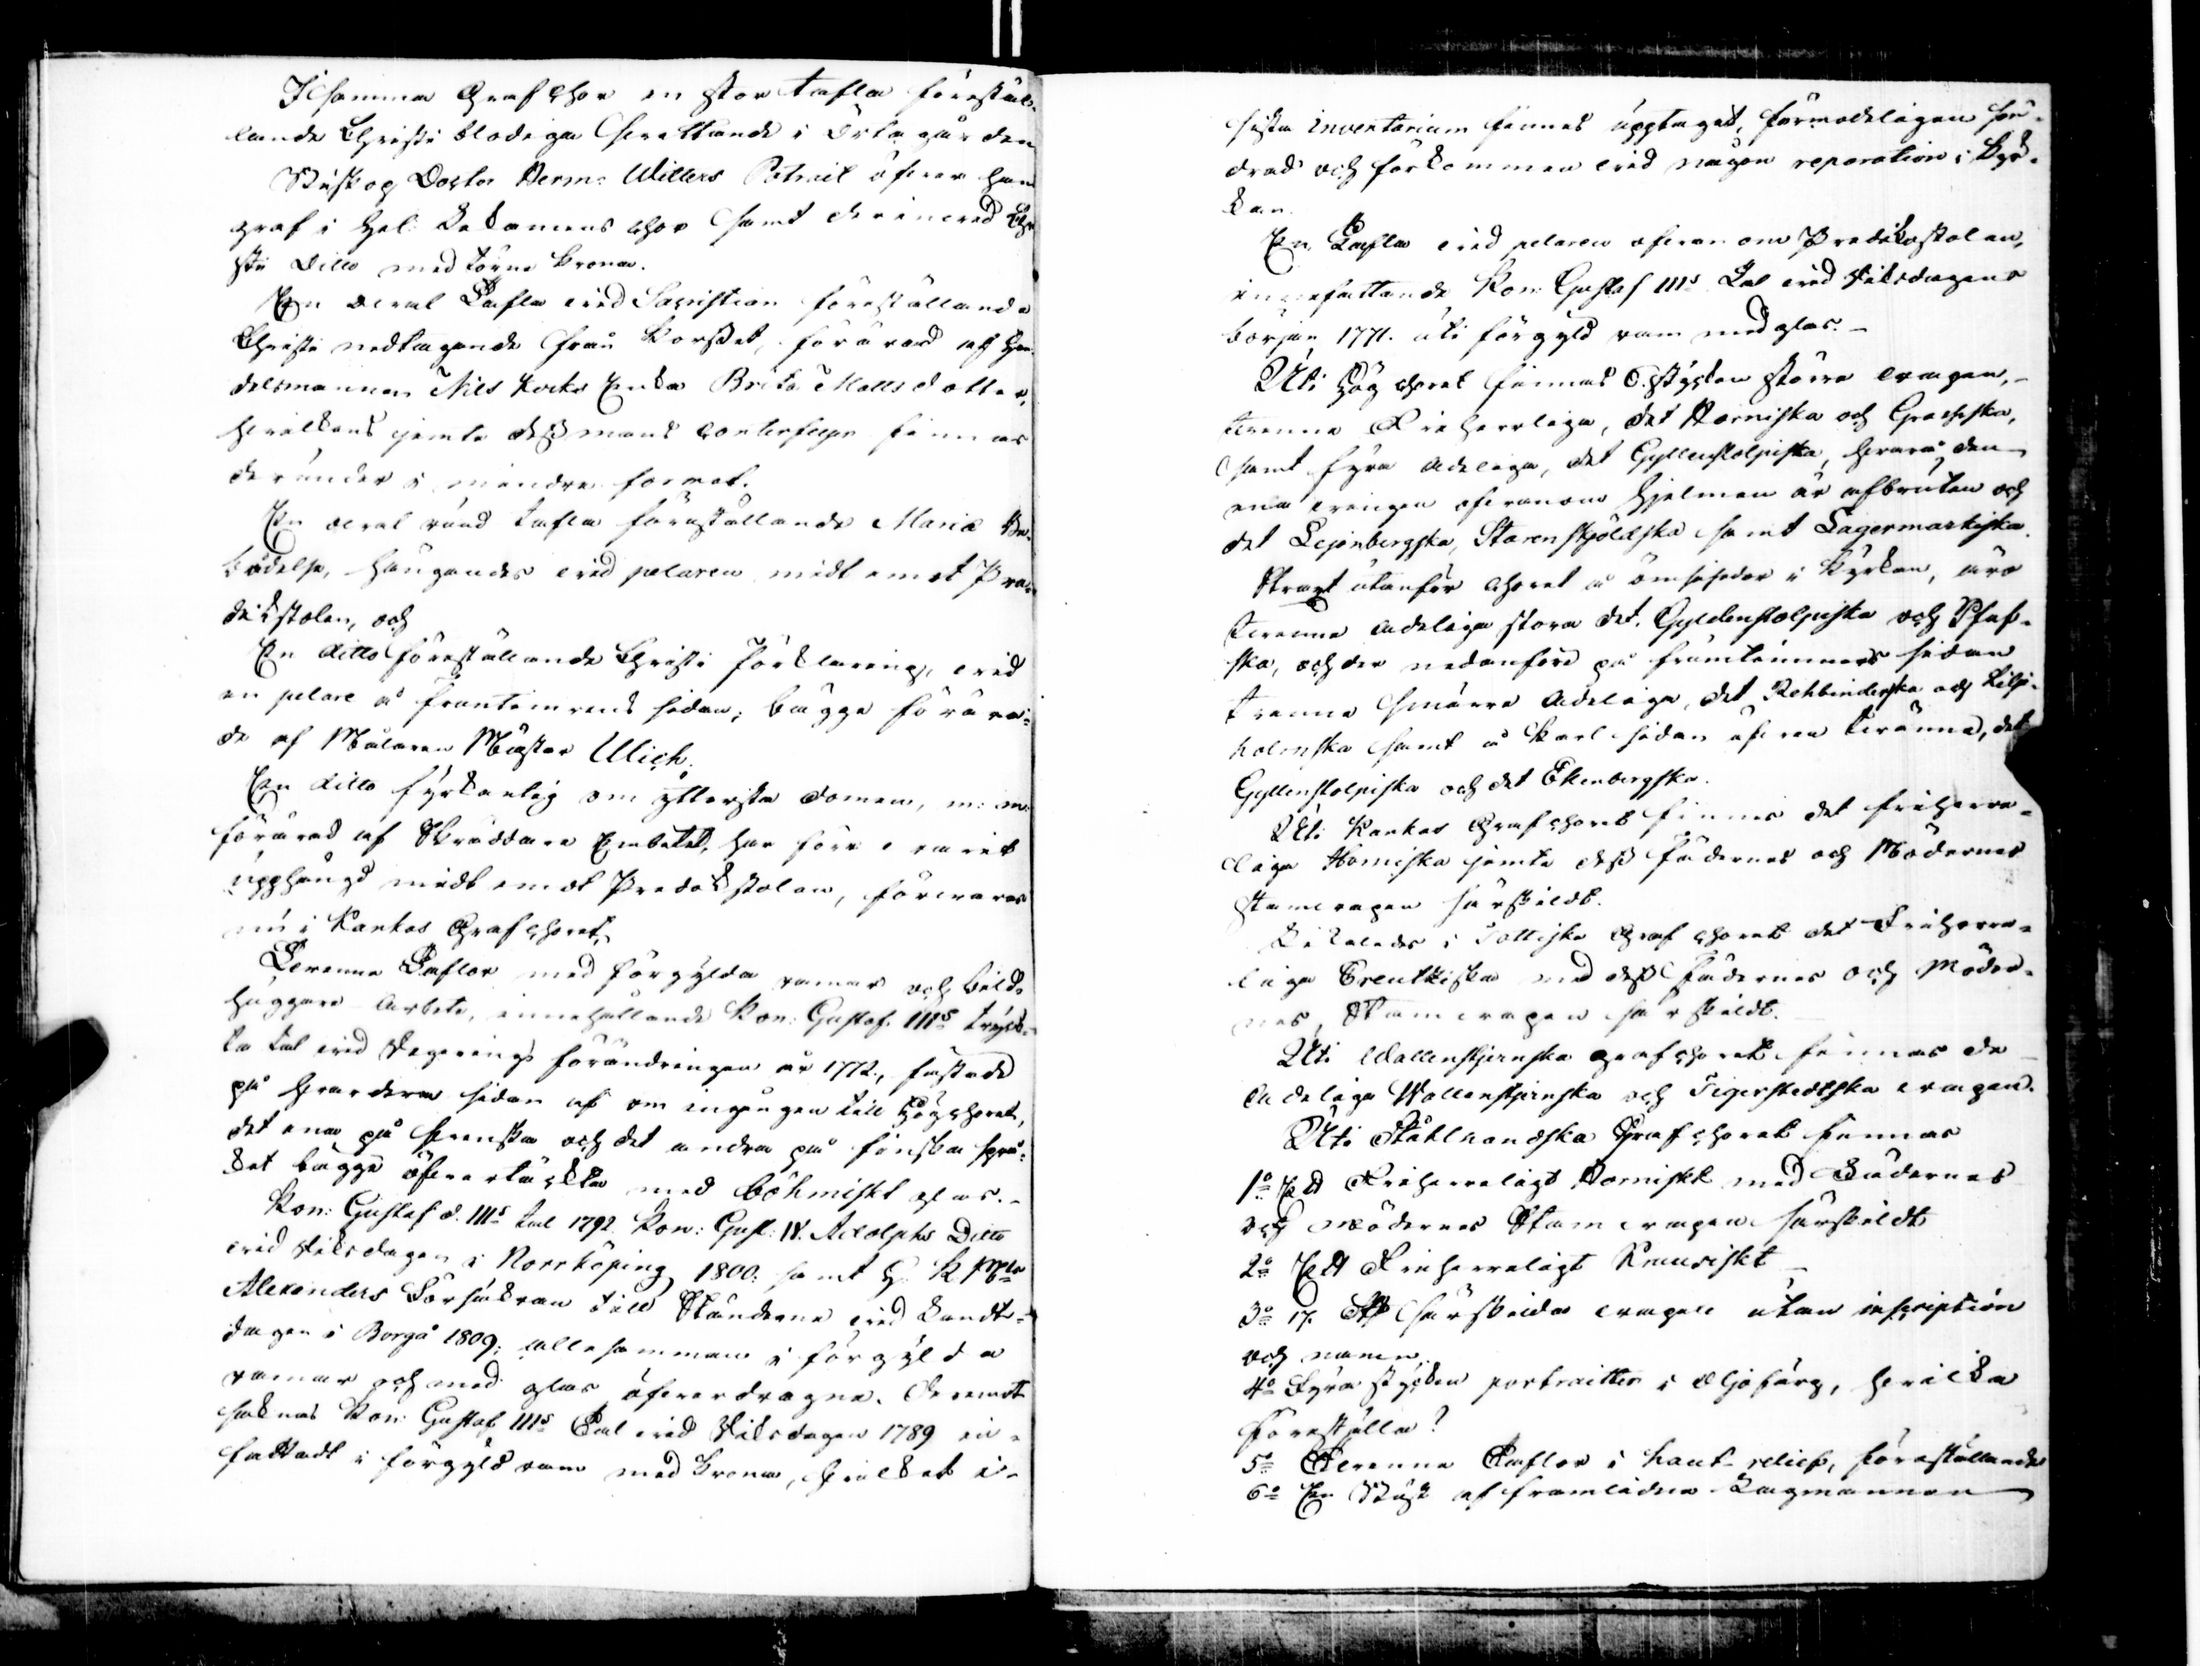 I samma Graf Chor en stor tafla förestäl-
lande Christi blodiga svettande i Örtagården
Biskop Doctor Herm: Witters Potrait öfver hans
graf i Hel. Lekamens Chor samt derinvid Chri-
sti Ditto med törne krona.
En oval Tafla vid Sacristian föreställande
Christi nedtagande från korsset, förärad af Han-
delsmannen Nils Enka Brita Matts dotter,
hvilkens jemte dess mans Conterfeyer finnas
derunder i mindre format.
En oval rund tafla föreställande Mariæ Be-
bådelse, hängandes vid pelaren midt emot Pre-
dikstolen, och
En ditto föreställande Christi förklaring, vid
en pelare å fruntimrens sidan; bägge förära-
de af Målaren Mäster Ulich.
En ditto fyrkantig om yttersta domen, m: m:
förärad af Skräddare Embetet, har förr varit
upphängd midt emot Predikstolen, förvaras
nu i Kankas Graf Choret.
Tvenne Taflor med förgylda ramar och bild-
huggare Arbete, innehållande Kon: Gustaf IIIs tryck-
ta tal vid Regerings förändringen år 1772, fästade
på hvardera sidan af om ingången till Högchoret,
det ena på svenska och det andra på finska språ-
ket bägge öfvertäckta med böhmiskt glas.-
Kon: Gustaf d. IIIs tal 1792. Kon: Gust: IV. Adolphs Ditto
vid Riksdagen i Norrköping 1800. samt H. K. Mts
Alexanders Försäkran till Ständerne vid Landt-
dagen i Borgå 1809; allesamman i förgylda
ramar och med glas öfverdragne. Deremot
saknas Kon: Gustaf IIIs Tal vid Riksdagen 1789 in-
fattadt i förgyld ram med krona, hvilket i
sista inventarium finnes upptaget, förmodeligen sön-
drad och förkommen vid någon reparation i kyr-
kan.
En Tafla vid pelaren ofvan om Predikostolen,
innefattande Kon: Gustaf IIIs Tal vid Riksdagens
början 1771. uti förgyld ram med glas.-
Uti Högchoret finnes 6. stycken större vapen,-
tvenne Friherrliga, det Hornska och ,
samt fyra Adeliga, det Gyllenstolpiska, hvarå den
ena vingen ofvanom hjelmen är afbruten och
det Lejonbergska, Starenskjöldska samt Lagermarkiska.
Straxt utanför Choret å ömsesidor i Kyrkan, äro
tvenne adeliga stora det Gyldenstolpiska och
ska, och der nedanföre på fruntimmers sidan
trenne smärre Adeliga, det Rehbinderska och
holmska samt å Karl sidan äfven tvänne, det
Gyllenstolpiska och det Ekenbergska.
Uti Kankas Graf Choret finnes det friherre-
liga Hornska jemte dess Fädernes och Mödernes
Stamvapen särskildt.
Likaledes i Tottiska Graf Choret det Friherre-
liga Creutziska med dess Fädernes och Möder-
nes, Stamvapen särskildt.
Uti Wallenstjernska graf Choret finnas de
Adeliga Wallenstjernska och Tigerstedtska vapen.
Uti Stålhandska Graf Choret finnas
1o Ett Friherreligt Horniskt med Fädernes
och mödernes Stamvapen särskildt
2o Ett Friherreligt Kruusiskt
3o 17. St särskilda vapen utan inscription
och namn.
4o Fyra stycken portraitter i Oljofärg, hvilka
föreställa?
5o Tvenne Taflor i haut relief, föreställande
6o En Büst af framledne Lagmannen